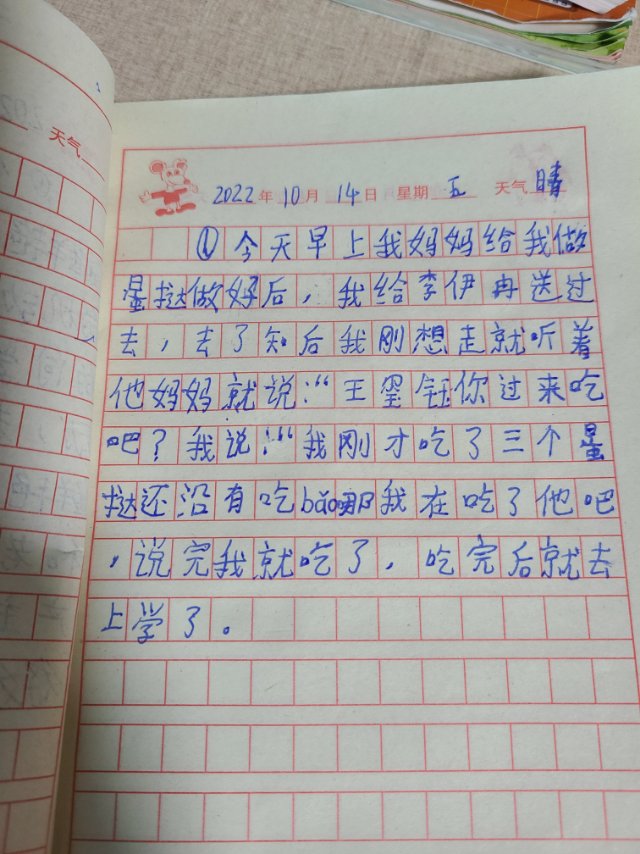 天气
2022年10月14日 星期五 天气晴
①今天早上我妈妈给我做
星挞做好后，我给李伊冉送过
去，去了知后我刚想走就听着
他妈妈就说：“王玺钰你过来吃
吧？我说：“我刚才吃了三个星
挞还没有吃bǎo那我在吃了他吧
，说完我就吃了，吃完后就去
上学了。